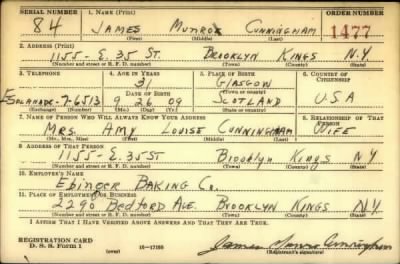 SERIAL NUMBER 1. NAME (Print) ORDER NUMBER
84 JAMES MUNROE CUNNINGHAM 1477
(First) (Middle) (Last)
2. ADDRESS (Print)
1155- E. 35 ST. BROOKLYN KINGS N.Y.
(Number and street or R. F. D. number) (Town) (County) (State)
3. TELEPHONE 4. AGE IN YEARS 5. PLACE OF BIRTH 6. COUNTRY OF CITIZENSHIP
31 GLASGOW
DATE OF BIRTH (Town or county)
ESPLANADE-7-6513 9 26 09 SCOTLAND U.S.A
(Exchange) (Number) (Mo.) (Day) (Yr.) (State or country)
7. NAME OF PERSON WHO WILL ALWAYS KNOW YOUR ADDRESS 8. RELATIONSHIP OF THAT PERSON
MRS. AMY LOUISE CUNNINGHAM WIFE
(Mr., Mrs., Miss) (First) (Middle) (Last)
9. ADDRESS OF THAT PERSON
1155- E. 35 ST BROOKLYN KINGS NY
(Number and street or R. F. D. number) (Town) (County) (State)
10. EMPLOYER'S NAME
EBINGER BAKING CO.
11. PLACE OF EMPLOYMENT OR BUSINESS
2290 BEDFORD AVE. BROOKLYN KINGS N.Y.
(Number and street or R. F. D. number) (Town) (County) (State)
I AFFIRM THAT I HAVE VERIFIED ABOVE ANSWERS AND THAT THEY ARE TRUE.
REGISTRATION CARD
D. S. S. Form 1 (over) 16-17105 James Munroe Cunningham
(Registrant's signature)